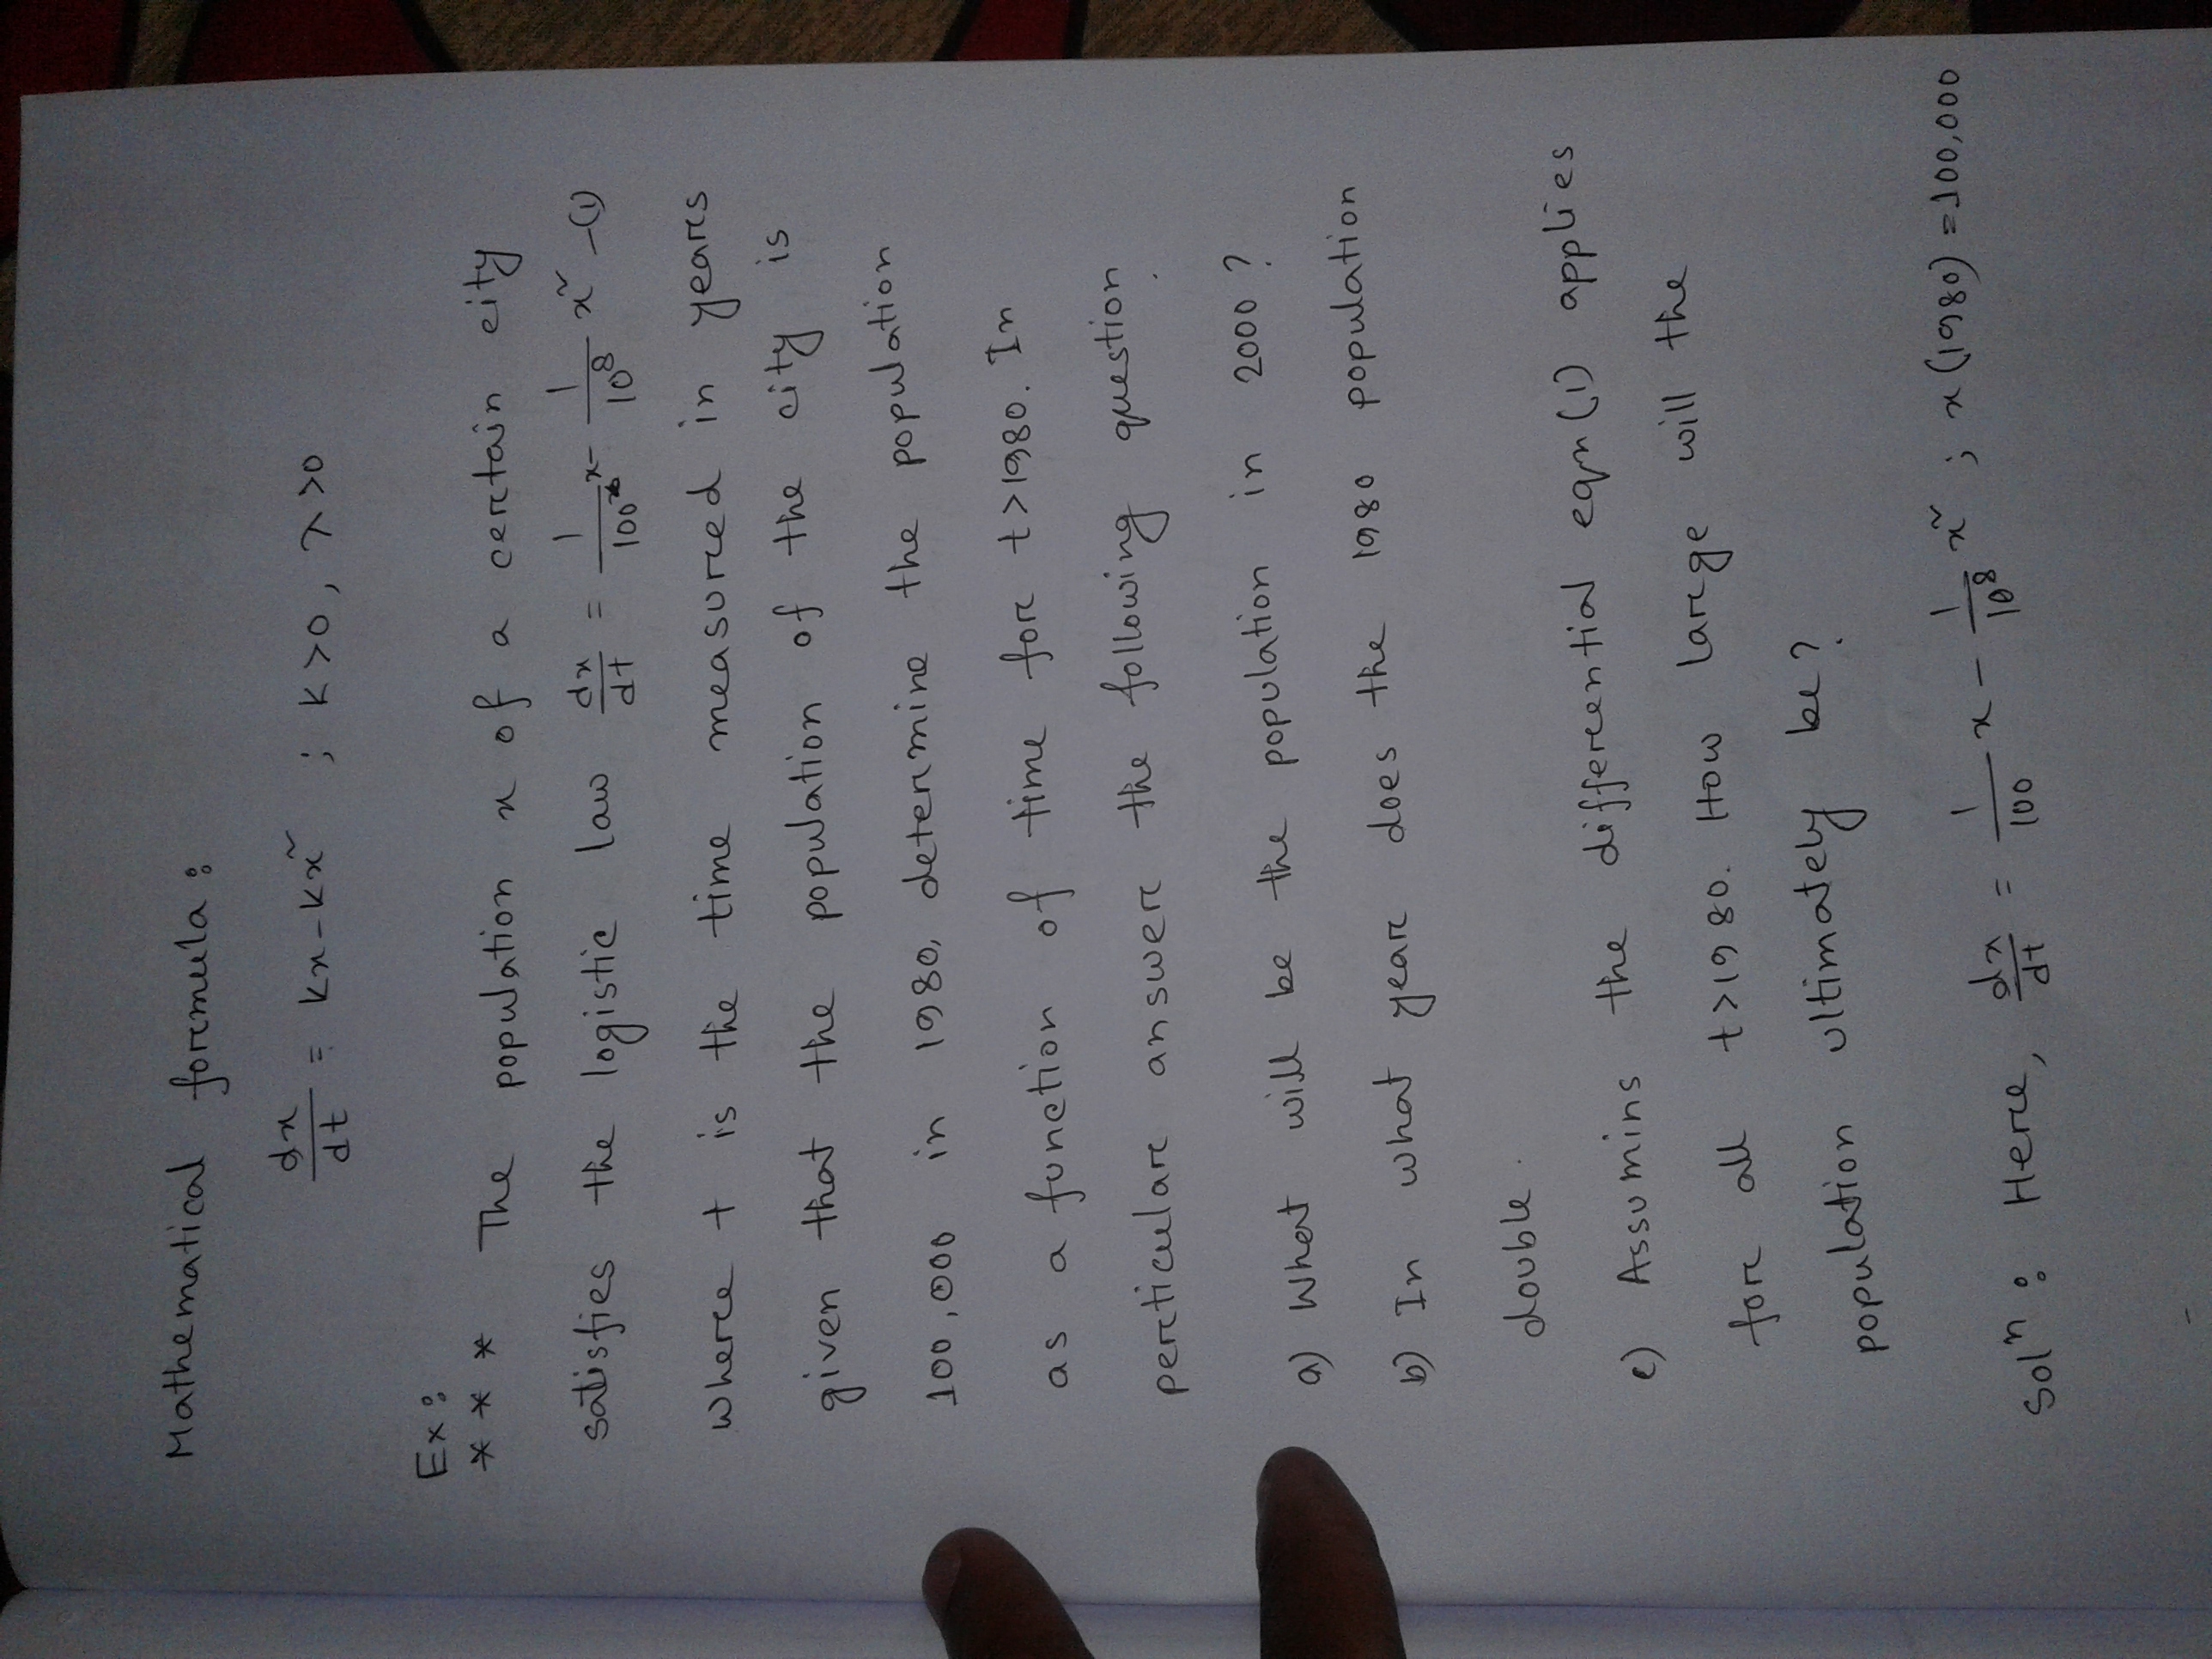 Mathematical forcmula :
dx/dt = kx - kx² ; k>0, λ>0
Ex :
* * * The population x of a certain city
satisfies the logistic law dx/dt = 1/100 x - 1/10⁸ x² —(1)
where t is the time measured in years
given that the population of the city is
100,000 in 1980, determine the population
as a function of time for t>1980. In
perticular answer the following question
a) What will be the population in 2000 ?
b) In what year does the 1980 population
double.
c) Assumins the differential eqn (1) applies
for all t>1980. How large will the
population ultimately be?
Solⁿ : Here, dx/dt = 1/100 x - 1/10⁸ x² ; x(1980) = 100,000